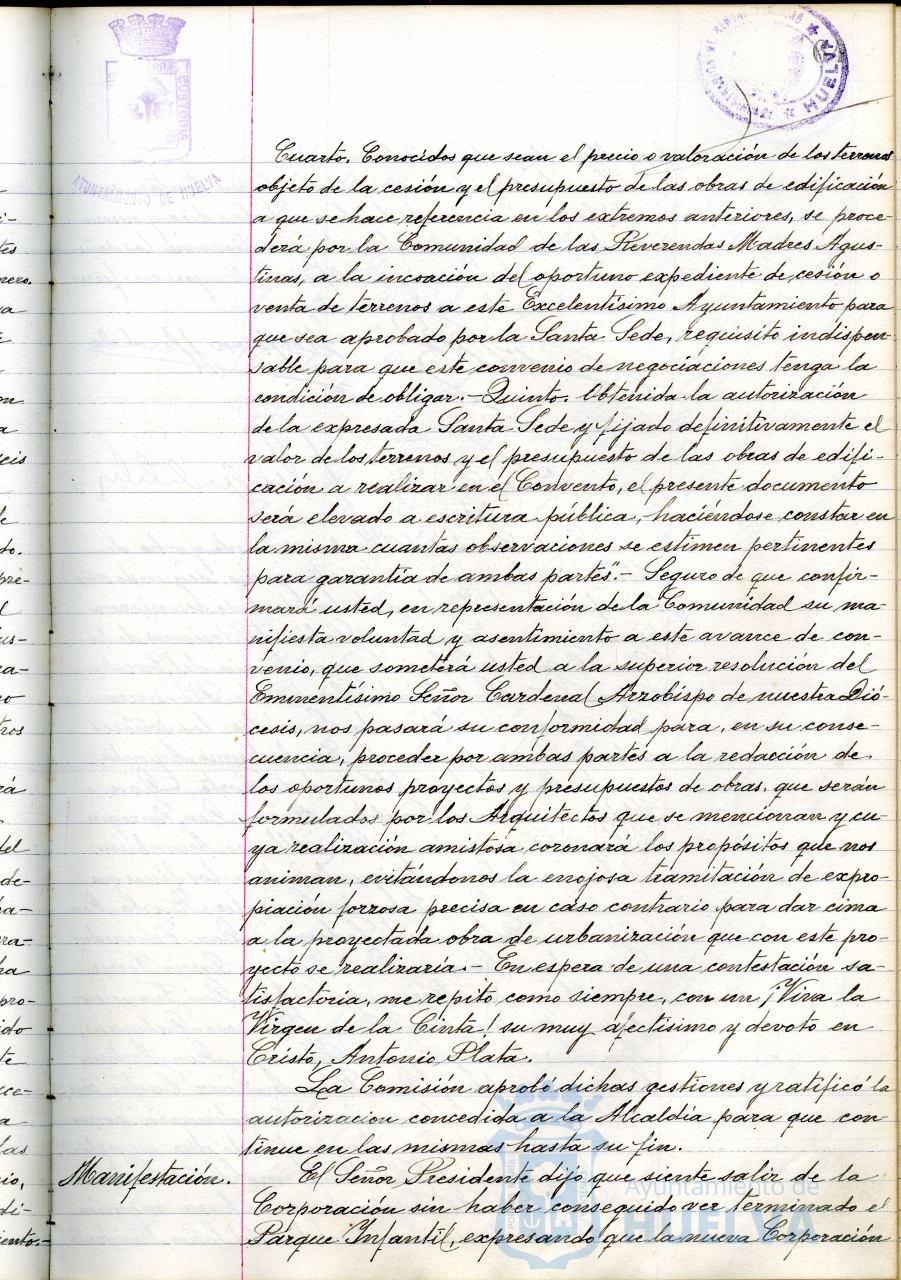 CUSTODIA
AYUNTAMIENTO DE HUELVA
HUELVA
Cuarto. Conocidos que sean el precio o valoración de los terrenos
objeto de la cesión y el presupuesto de las obras de edificación
a que se hace referencia en los extremos anteriores, se proce-
derá por la Comunidad de las Reverendas Madres Agus-
tinas, a la incoación del oportuno expediente de cesión o
venta de terrenos a este Excelentísimo Ayuntamiento para
que sea aprobado por la Santa Sede, requisito indispen-
sable para que este convenio de negociaciones tenga la
condición de obligar.- Quinto. Obtenida la autorización
de la expresada Santa Sede y fijado definitivamente el
valor de los terrenos y el presupuesto de las obras de edifi-
cación a realizar en el Convento, el presente documento
será elevado a escritura pública, haciéndose constar en
la misma cuantas observaciones se estimen pertinentes
para garantía de ambas partes".- Seguro de que confir-
mará usted, en representación de la Comunidad su ma-
nifiesta voluntad y asentimiento a este avance de con-
venio, que someterá usted a la superior resolución del
Eminentísimo Señor Cardenal Arzobispo de nuestra Dió-
cesis, nos pasará su conformidad para, en su conse-
cuencia, proceder por ambas partes a la redacción de
los oportunos proyectos y presupuestos de obras, que serán
formulados por los Arquitectos que se mencionan y cu-
ya realización amistosa coronará los propósitos que nos
animan, evitándonos la enojosa tramitación de expro-
piación forzosa precisa en caso contrario para dar cima
a la proyectada obra de urbanización que con este pro-
yecto se realizaría.- En espera de una contestación sa-
tisfactoria, me repito como siempre, con un ¡Viva la
Virgen de la Cinta! su muy afectísimo y devoto en
Cristo, Antonio Plata.
La Comisión aprobó dichas gestiones y ratificó la
autorizacion concedida a la Alcaldía para que con-
tinue en las mismas hasta su fin.
Manifestación. El Señor Presidente dijo que siente salir de la
Corporación sin haber conseguido ver terminado el
Parque Infantil, expresando que la nueva Corporación
Ayuntamiento de
HUELVA